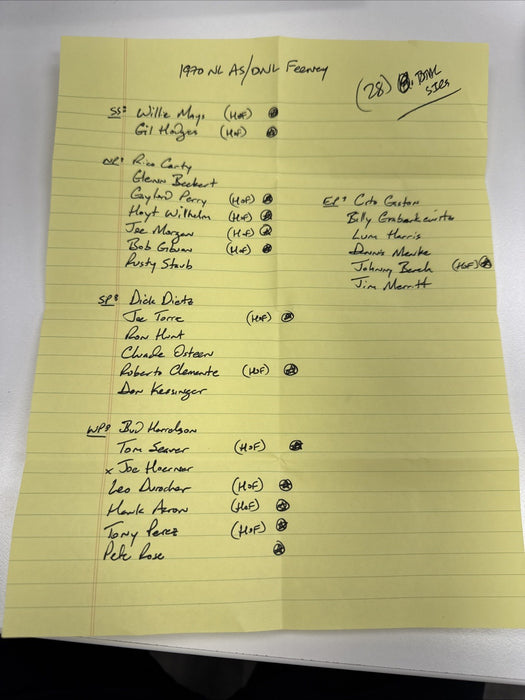 1970 NL AS/ONL Feeney
(28) B. Ball
SIGS
SS: Willie Mays (HoF)
Gil Hodges (HoF)
NP: Rico Carty
Glenn Beckert
Gaylord Perry (HoF)
Hoyt Wilhelm (HoF)
Joe Morgan (HoF)
Bob Gibson (HoF)
Rusty Staub
EP: Cito Gaston
Billy Grabarkewitz
Lum Harris
Denis Menke
Johnny Bench (HoF)
Jim Merritt
SP: Dick Dietz
Joe Torre (HoF)
Ron Hunt
Claude Osteen
Roberto Clemente (HoF)
Don Kessinger
WP: Bud Harrelson
Tom Seaver (HoF)
x Joe Hoerner
Leo Durocher (HoF)
Hank Aaron (HoF)
Tony Perez (HoF)
Pete Rose